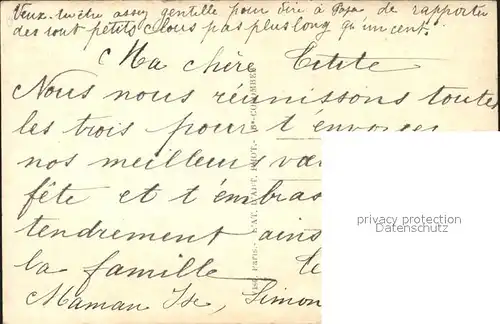 Veux-tu être assez gentille pour dire à Papa de rapporter
des tout petits clous pas plus long qu'un cent.
Ma chère Titite
Nous nous réunissons toutes
les trois pour t'envoyer
nos meilleurs vœ
fête et t'embras
tendrement ains
la famille
Maman Ise, Simon
PARIS. - ÉTAB. D'ART, PHOT. - Bs-COLOMBES
privacy protection
Datenschutz